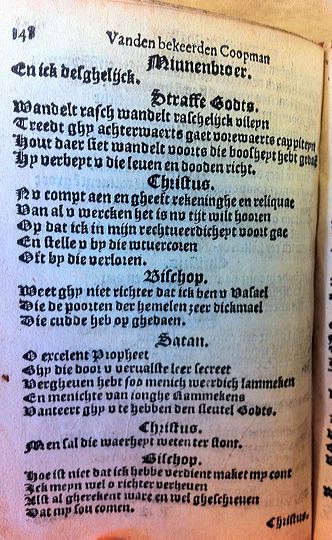 148
Vanden bekeerden Coopman
Minnenbroer.
En ick desghelijck.
Straffe Godts.
Wandelt rasch wandelt raschelijck vileyn
Treedt ghy achterwaerts gaet vorewaerts cappiteyn
Hout daer siet wandelt voorts die boosheyt hebt gedaē
Hy verbeyt v die leuen en dooden richt.
Christus.
Nv compt aen en gheeft rekeninghe en reliquae
Van al v wercken het is nv tijt wilt hooren
Op dat ick in mijn rechtueerdicheyt voort gae
En stelle v by die wtuercoren
Oft by die verloren.
Bisschop.
Weet ghy niet richter dat ick ben v Vasael
Die de poorten der hemelen zeer dickmael
Die cudde heb op ghedaen.
Satan.
O excelent Propheet
Ghy die door v veruaelste leer secreet
Vergheuen hebt soo menich weerdich lammeken
En menichte van ionghe Rammekens
Vanteert ghy v te hebben den sleutel Godts.
Christus.
Men sal die waerheyt weten ter stont.
Bischop.
Hoe ist niet dat ick hebbe verdient maket my cont
Ick meyn wel o richter verheuen
Alst al gherekent ware en wel gheschreuen
Dat my sou comen.
Christus.